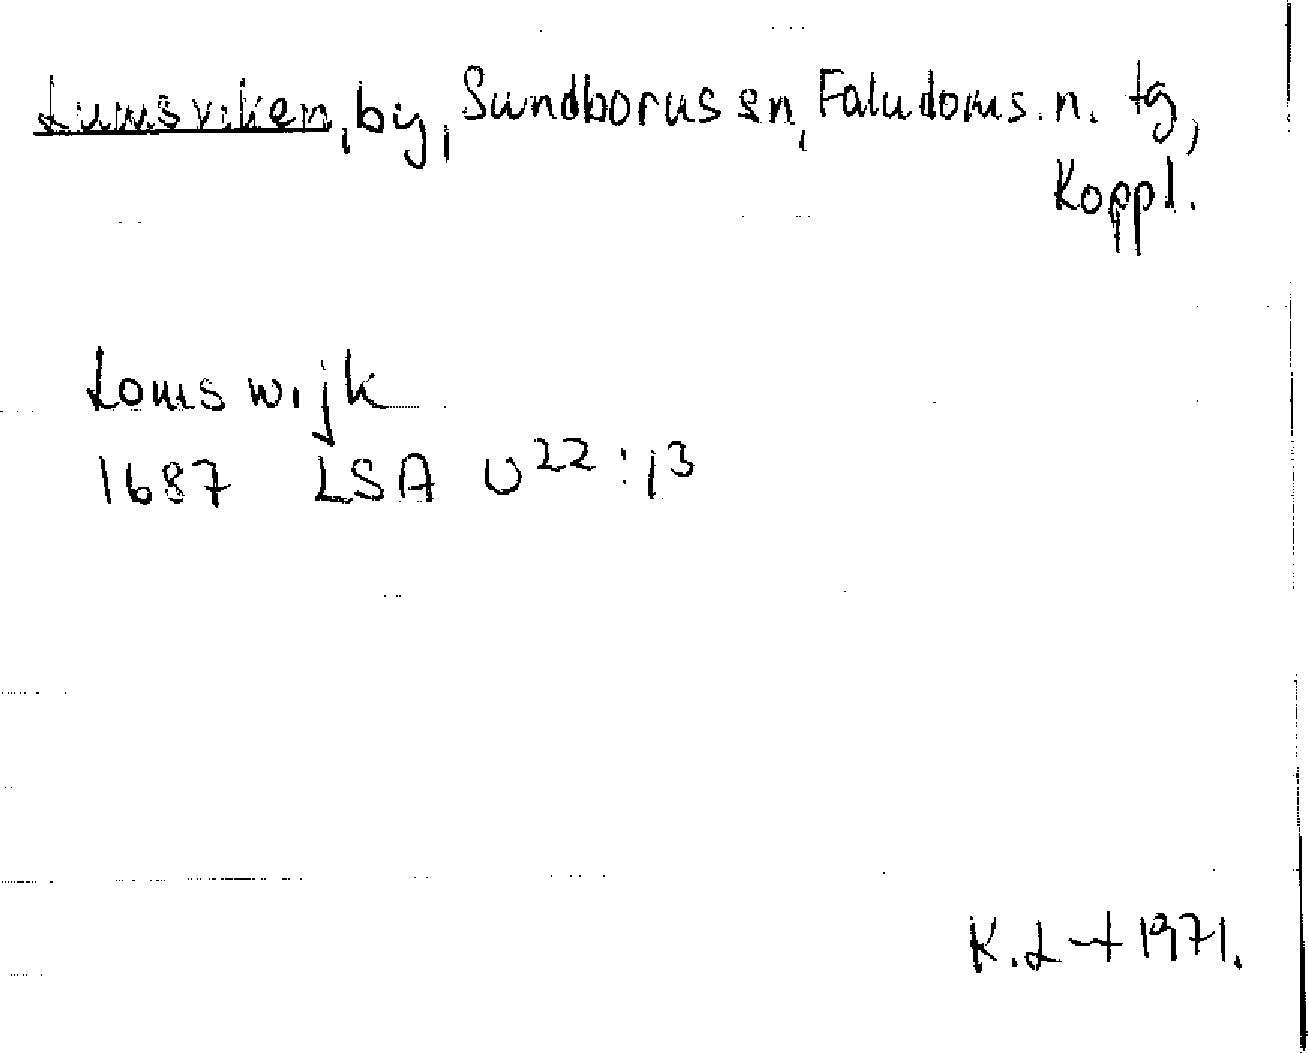 Lumsviken, by, Sundborns sn, Falu doms. n. tg,
Koppl.
Lomswijk
1687 LSA U22:13
K.L-t 1971.